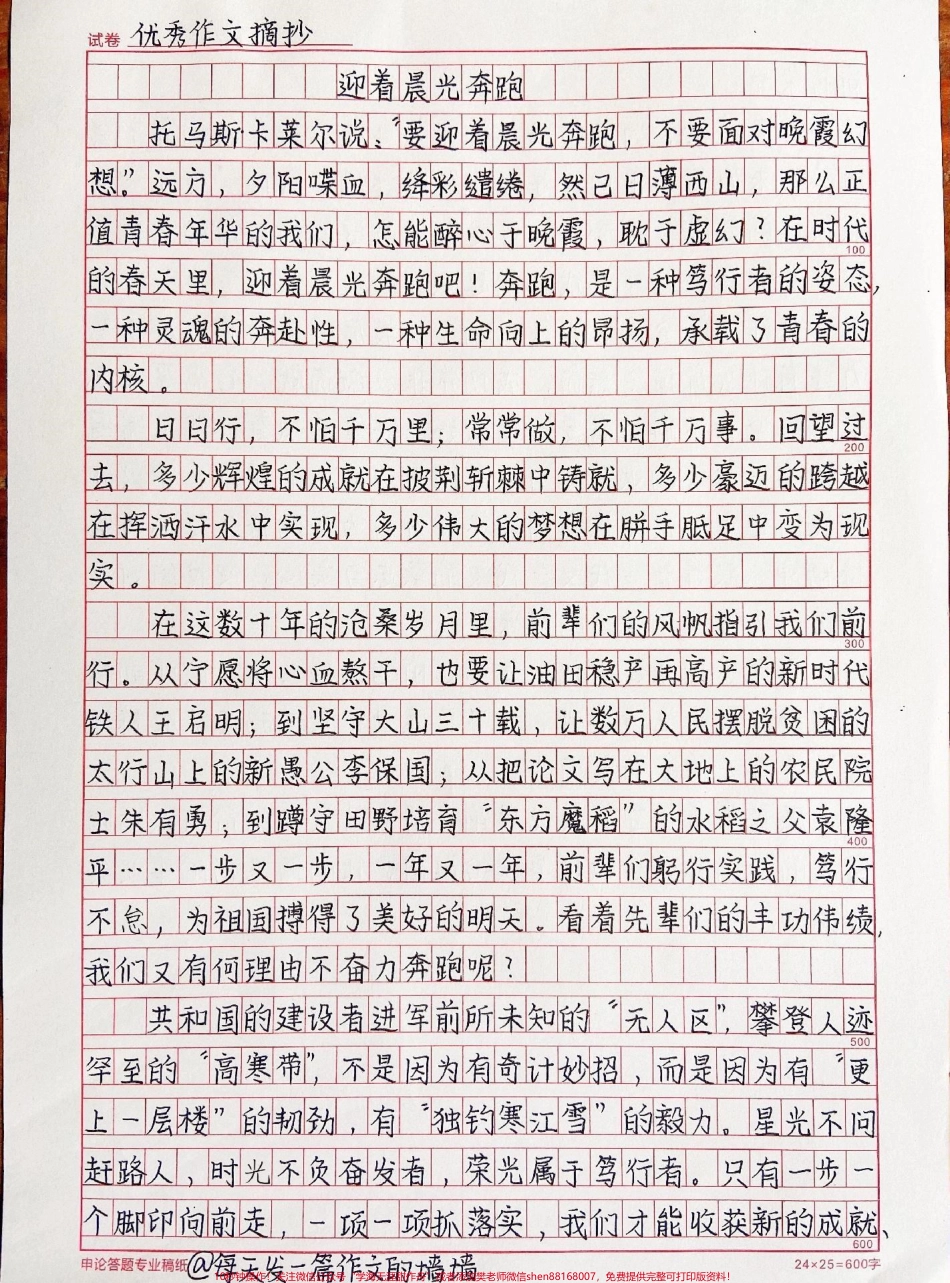 试卷 优秀作文摘抄
迎着晨光奔跑
托马斯·卡莱尔说：“要迎着晨光奔跑，不要面对晚霞幻
想。”远方，夕阳喋血，绛彩缱绻，然己日薄西山，那么正
值青春年华的我们，怎能醉心于晚霞，耽于虚幻？在时代
100
的春天里，迎着晨光奔跑吧！奔跑，是一种笃行者的姿态，
一种灵魂的奔赴性，一种生命向上的昂扬，承载了青春的
内核。
日日行，不怕千万里；常常做，不怕千万事。回望过
200
去，多少辉煌的成就在披荆斩棘中铸就，多少豪迈的跨越
在挥洒汗水中实现，多少伟大的梦想在胼手胝足中变为现
实。
在这数十年的沧桑岁月里，前辈们的风帆指引我们前
300
行。从宁愿将心血熬干，也要让油田稳产再高产的新时代
铁人王启明；到坚守大山三十载，让数万人民摆脱贫困的
太行山上的新愚公李保国；从把论文写在大地上的农民院
士朱有勇；到蹲守田野培育“东方魔稻”的水稻之父袁隆
400
平……一步又一步，一年又一年，前辈们躬行实践，笃行
不怠，为祖国搏得了美好的明天。看着先辈们的丰功伟绩，
我们又有何理由不奋力奔跑呢？
共和国的建设者进军前所未知的“无人区”，攀登人迹
500
罕至的“高寒带”，不是因为有奇计妙招，而是因为有“更
上一层楼”的韧劲，有“独钓寒江雪”的毅力。星光不问
赶路人，时光不负奋发者，荣光属于笃行者。只有一步一
个脚印向前走，一项一项抓落实，我们才能收获新的成就、
600
申论答题专业稿纸 @每天发一篇作文的墙墙 24×25=600字
shen88168007，免费提供完整可打印版资料！